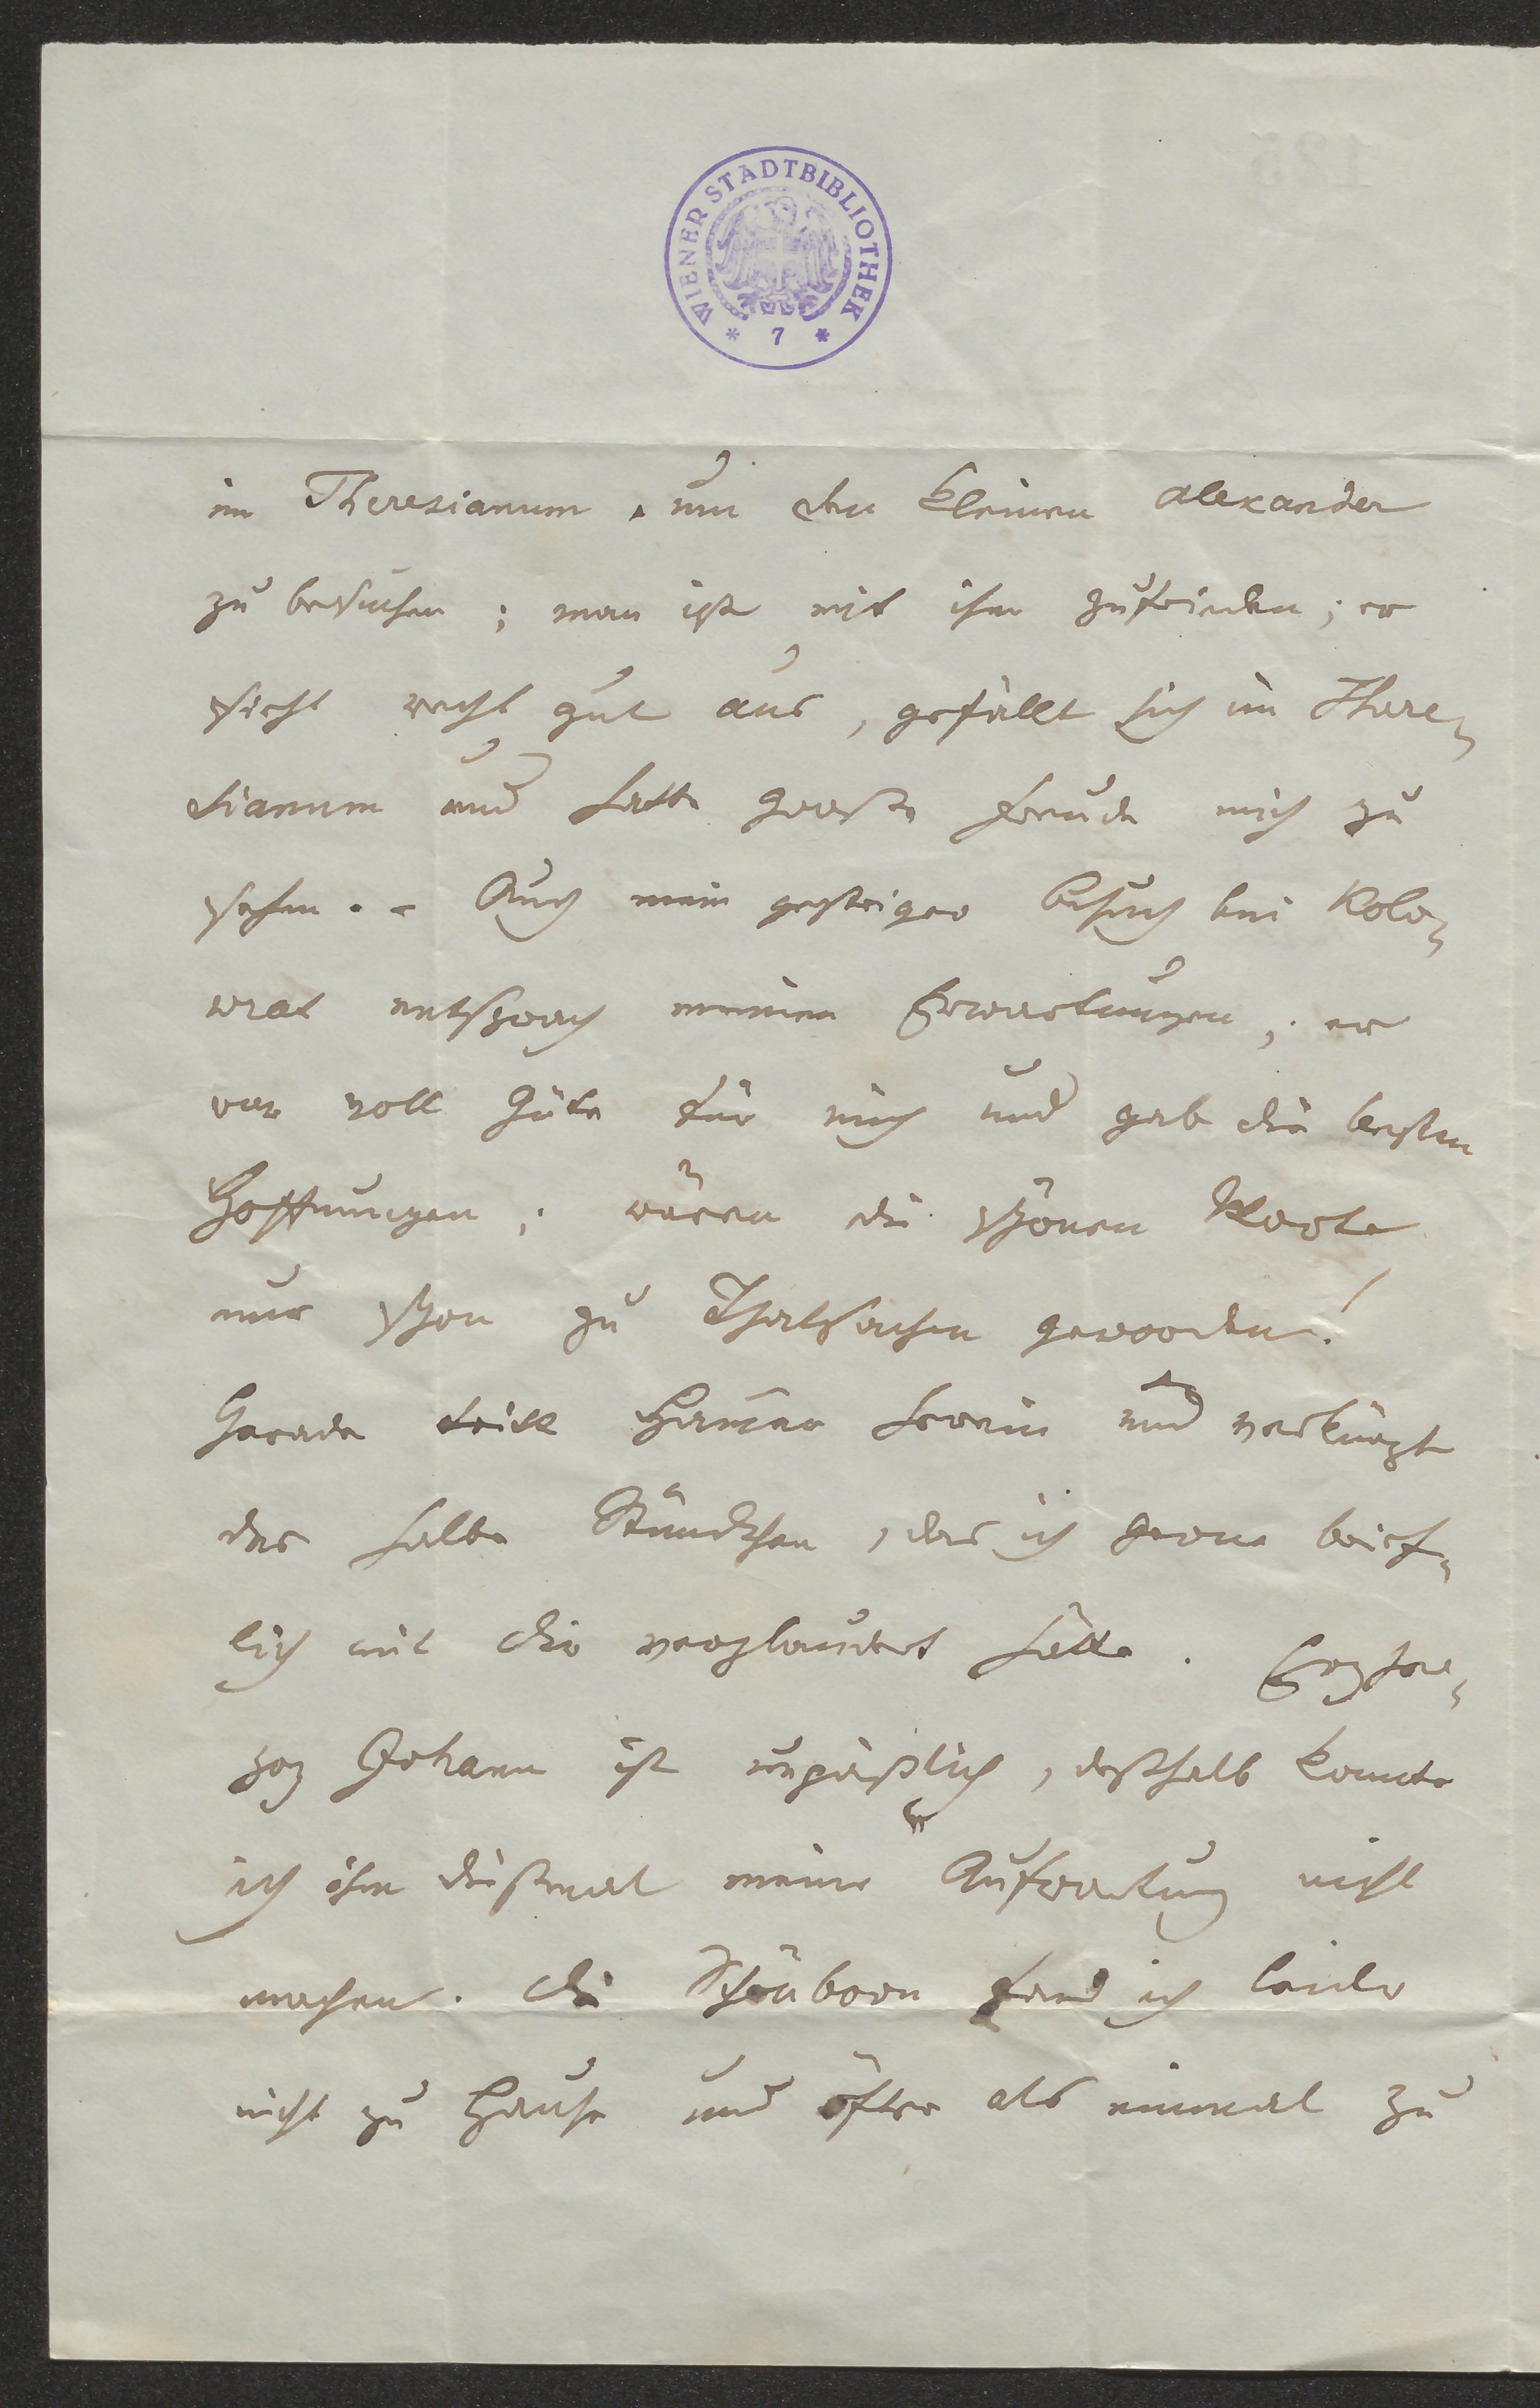 WIENER STADTBIBLIOTHEK
* 7 *
im Theresianum, um den kleinen Alexander
zu besuchen; man ist mit ihm zufrieden; er
sieht recht gut aus, gefällt sich im There-
sianum und hatte große Freude mich zu
sehen. - Auch mein gestriger Besuch bei Kolo-
wrat entsprach meinen Erwartungen; er
war voll Güte für mich und gab die besten
Hoffnungen; wären die schönen Worte
nur schon zu Thatsachen geworden!
Gerade tritt Hamer herein und verkürzt
das halbe Stündchen, das ich gerne brief-
lich mit dir verplaudert hätte. Erzher-
zog Johann ist unpäßlich, deßhalb konnte
ich ihm dießmal meine Aufwartung nicht
machen. Die Schönborn fand ich leider
nicht zu Hause und öfter als einmal zu